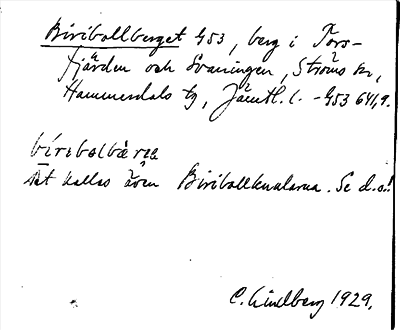 Biribollberget G53, berg i Fors-
fjärden och Svaningen, Ströms sn,
Hammerdals tg, Jämtl. l. - G53 641,9.
biribolbære
Det kallas även Biribollknularna. Se d.o.!
C. Lindberg 1929.